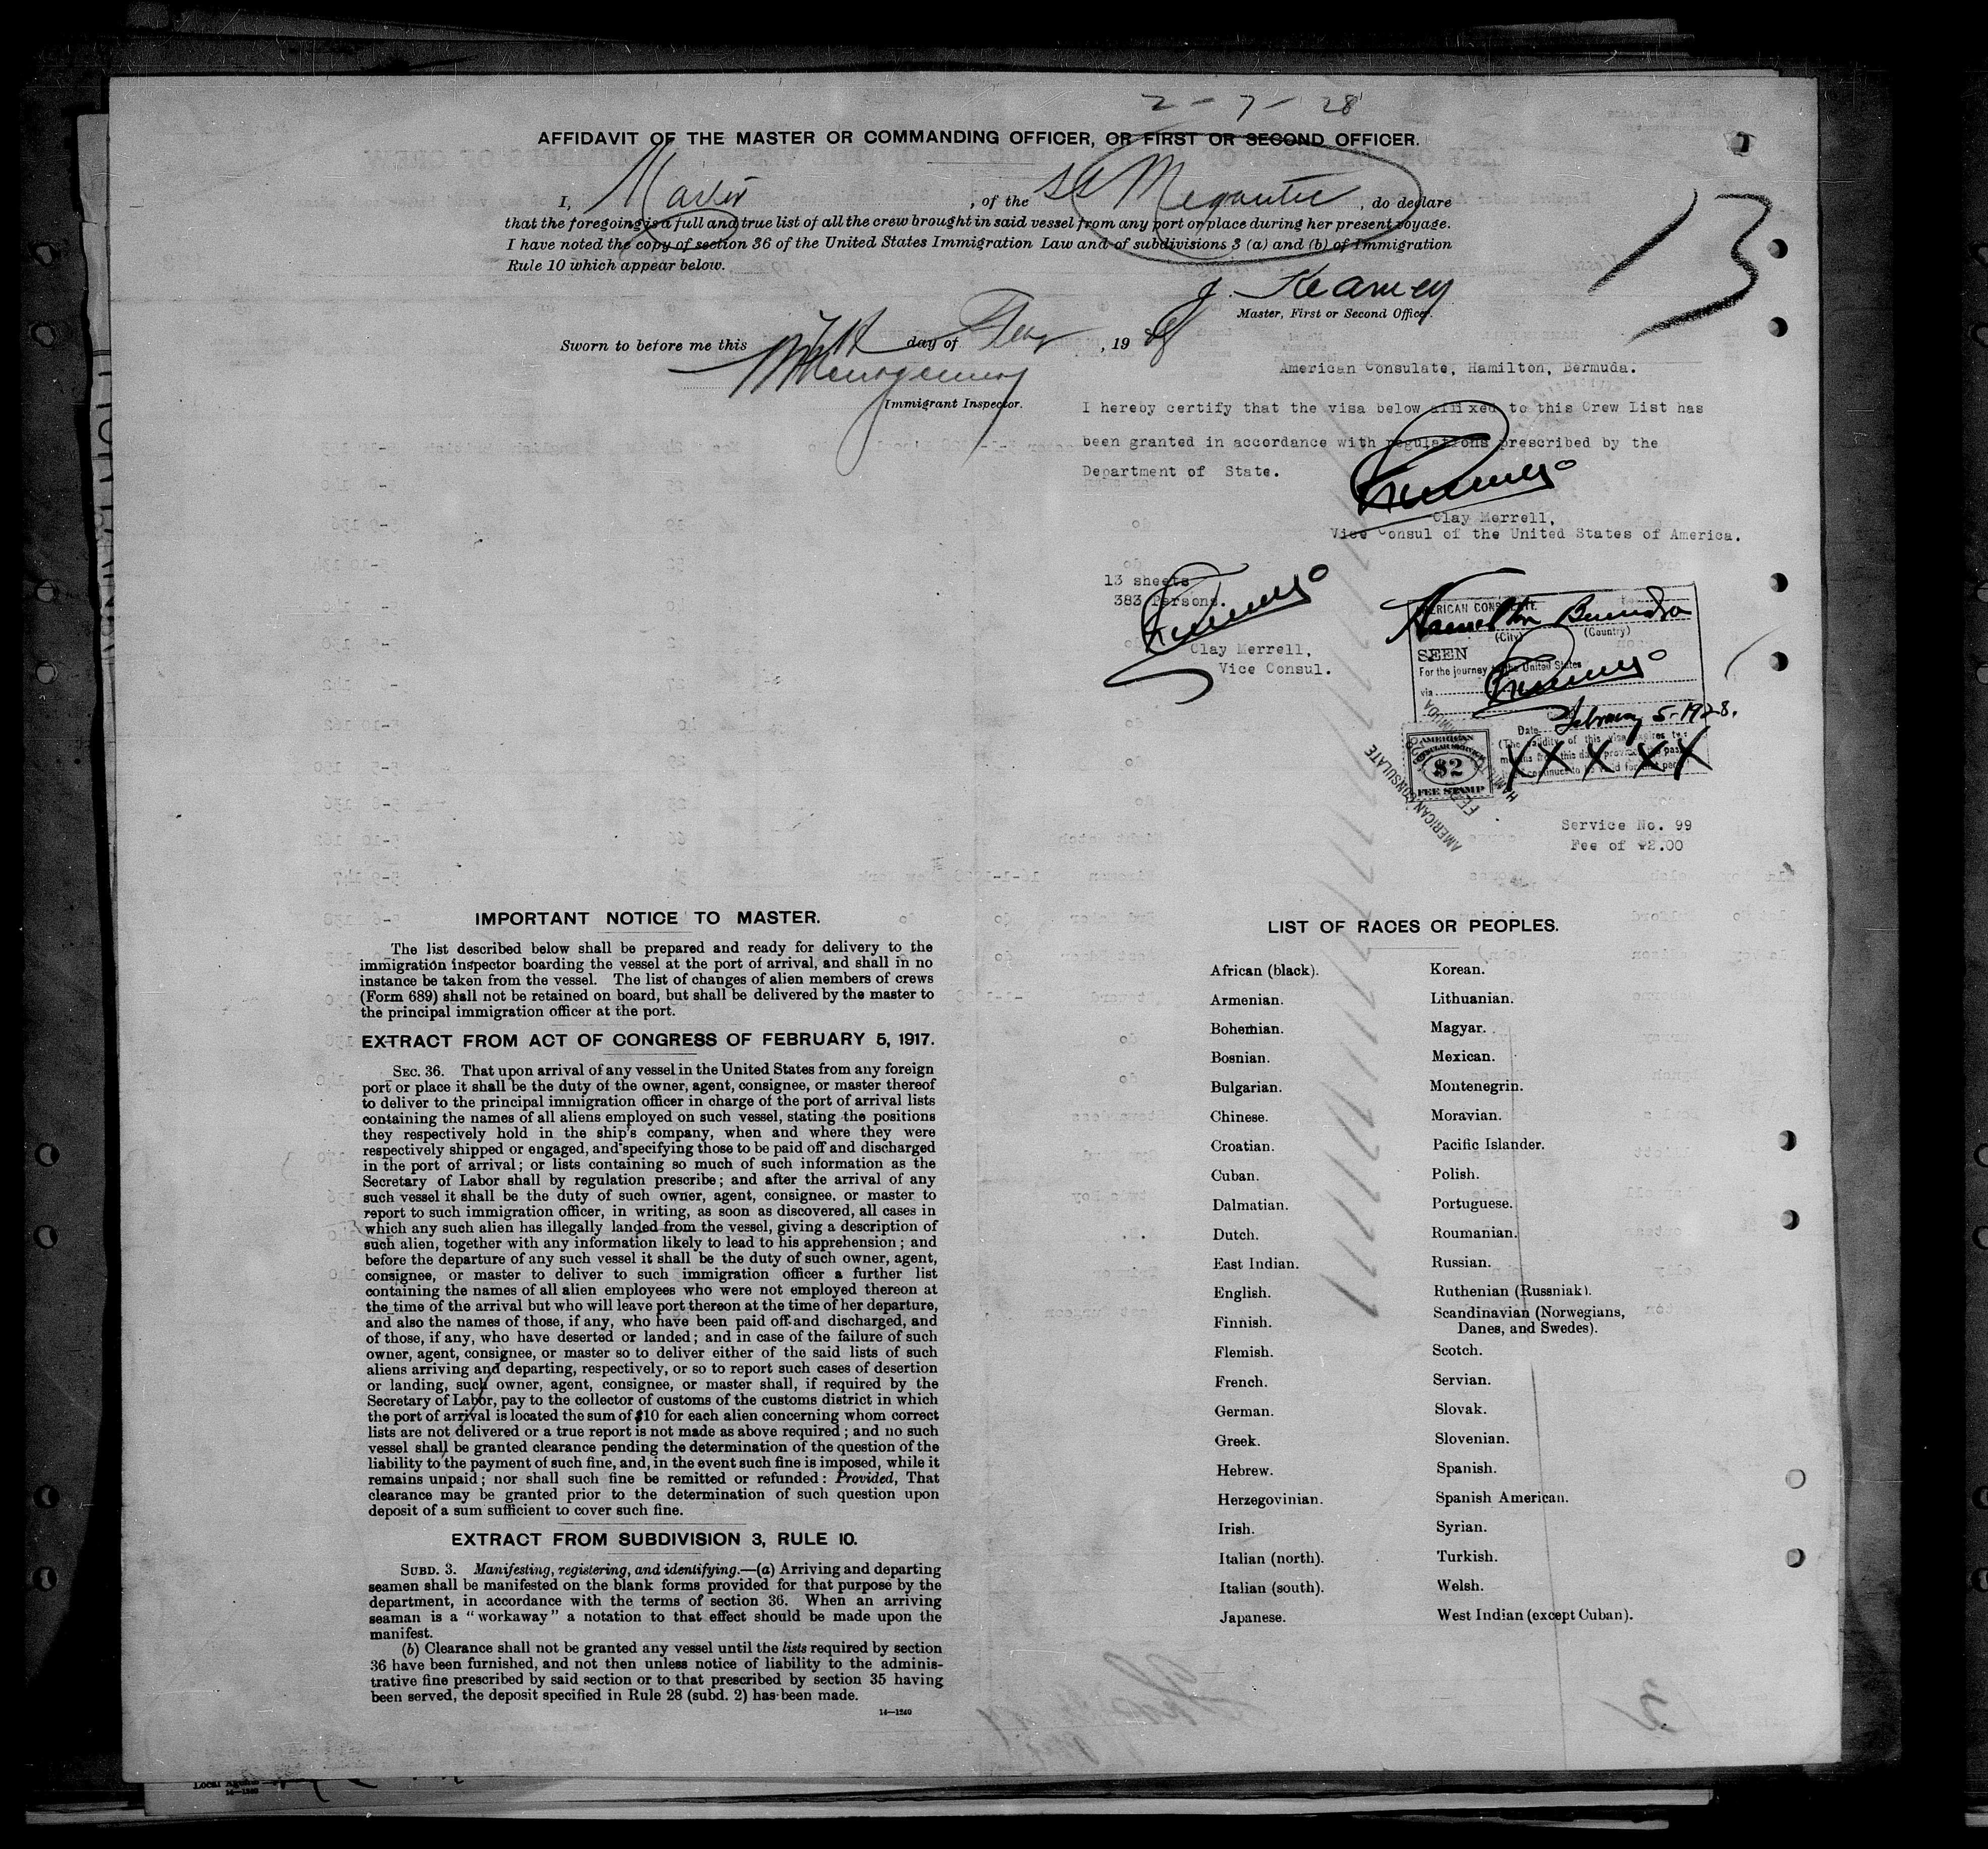 2-7-28
AFFIDAVIT OF THE MASTER OR COMMANDING OFFICER, OR FIRST OR SECOND OFFICER.
I, Master, of the SS Megantic, do declare
that the foregoing is a full and true list of all the crew brought in said vessel from any port or place during her present voyage.
I have noted the copy of section 36 of the United States Immigration Law and of subdivisions 3 (a) and (b) of Immigration
Rule 10 which appear below.
13
J. Kearney
Master, First or Second Officer.
Sworn to before me this 7th day of Feby, 1928
Montgomery
Immigrant Inspector.
American Consulate, Hamilton, Bermuda.
I hereby certify that the visa below affixed to this Crew List has
been granted in accordance with regulations prescribed by the
Department of State.
Clay Merrell,
Vice Consul of the United States of America.
13 sheets
383 Persons.
Clay Merrell,
Vice Consul.
AMERICAN CONSULATE
Hamilton Bermuda
(City) (Country)
SEEN
For the journey to the United States
via
Date February 5-1928.
(The validity of this visa expires
XXXXX
AMERICAN
CONSULAR SERVICE
$2
FEE STAMP
AMERICAN CONSULATE
Service No. 99
Fee of $2.00
IMPORTANT NOTICE TO MASTER.
The list described below shall be prepared and ready for delivery to the
immigration inspector boarding the vessel at the port of arrival, and shall in no
instance be taken from the vessel. The list of changes of alien members of crews
(Form 689) shall not be retained on board, but shall be delivered by the master to
the principal immigration officer at the port.
EXTRACT FROM ACT OF CONGRESS OF FEBRUARY 5, 1917.
SEC. 36. That upon arrival of any vessel in the United States from any foreign
port or place it shall be the duty of the owner, agent, consignee, or master thereof
to deliver to the principal immigration officer in charge of the port of arrival lists
containing the names of all aliens employed on such vessel, stating the positions
they respectively hold in the ship's company, when and where they were
respectively shipped or engaged, and specifying those to be paid off and discharged
in the port of arrival; or lists containing so much of such information as the
Secretary of Labor shall by regulation prescribe; and after the arrival of any
such vessel it shall be the duty of such owner, agent, consignee, or master to
report to such immigration officer, in writing, as soon as discovered, all cases in
which any such alien has illegally landed from the vessel, giving a description of
such alien, together with any information likely to lead to his apprehension; and
before the departure of any such vessel it shall be the duty of such owner, agent,
consignee, or master to deliver to such immigration officer a further list
containing the names of all alien employees who were not employed thereon at
the time of the arrival but who will leave port thereon at the time of her departure,
and also the names of those, if any, who have been paid off and discharged, and
of those, if any, who have deserted or landed; and in case of the failure of such
owner, agent, consignee, or master so to deliver either of the said lists of such
aliens arriving and departing, respectively, or so to report such cases of desertion
or landing, such owner, agent, consignee, or master shall, if required by the
Secretary of Labor, pay to the collector of customs of the customs district in which
the port of arrival is located the sum of $10 for each alien concerning whom correct
lists are not delivered or a true report is not made as above required; and no such
vessel shall be granted clearance pending the determination of the question of the
liability to the payment of such fine, and, in the event such fine is imposed, while it
remains unpaid; nor shall such fine be remitted or refunded: Provided, That
clearance may be granted prior to the determination of such question upon
deposit of a sum sufficient to cover such fine.
EXTRACT FROM SUBDIVISION 3, RULE 10.
SUBD. 3. Manifesting, registering, and identifying.—(a) Arriving and departing
seamen shall be manifested on the blank forms provided for that purpose by the
department, in accordance with the terms of section 36. When an arriving
seaman is a "workaway" a notation to that effect should be made upon the
manifest.
(b) Clearance shall not be granted any vessel until the lists required by section
36 have been furnished, and not then unless notice of liability to the adminis-
trative fine prescribed by said section or to that prescribed by section 35 having
been served, the deposit specified in Rule 28 (subd. 2) has been made.
14—1240
LIST OF RACES OR PEOPLES.
African (black).
Armenian.
Bohemian.
Bosnian.
Bulgarian.
Chinese.
Croatian.
Cuban.
Dalmatian.
Dutch.
East Indian.
English.
Finnish.
Flemish.
French.
German.
Greek.
Hebrew.
Herzegovinian.
Irish.
Italian (north).
Italian (south).
Japanese.
Korean.
Lithuanian.
Magyar.
Mexican.
Montenegrin.
Moravian.
Pacific Islander.
Polish.
Portuguese.
Roumanian.
Russian.
Ruthenian (Russniak).
Scandinavian (Norwegians,
Danes, and Swedes).
Scotch.
Servian.
Slovak.
Slovenian.
Spanish.
Spanish American.
Syrian.
Turkish.
Welsh.
West Indian (except Cuban).